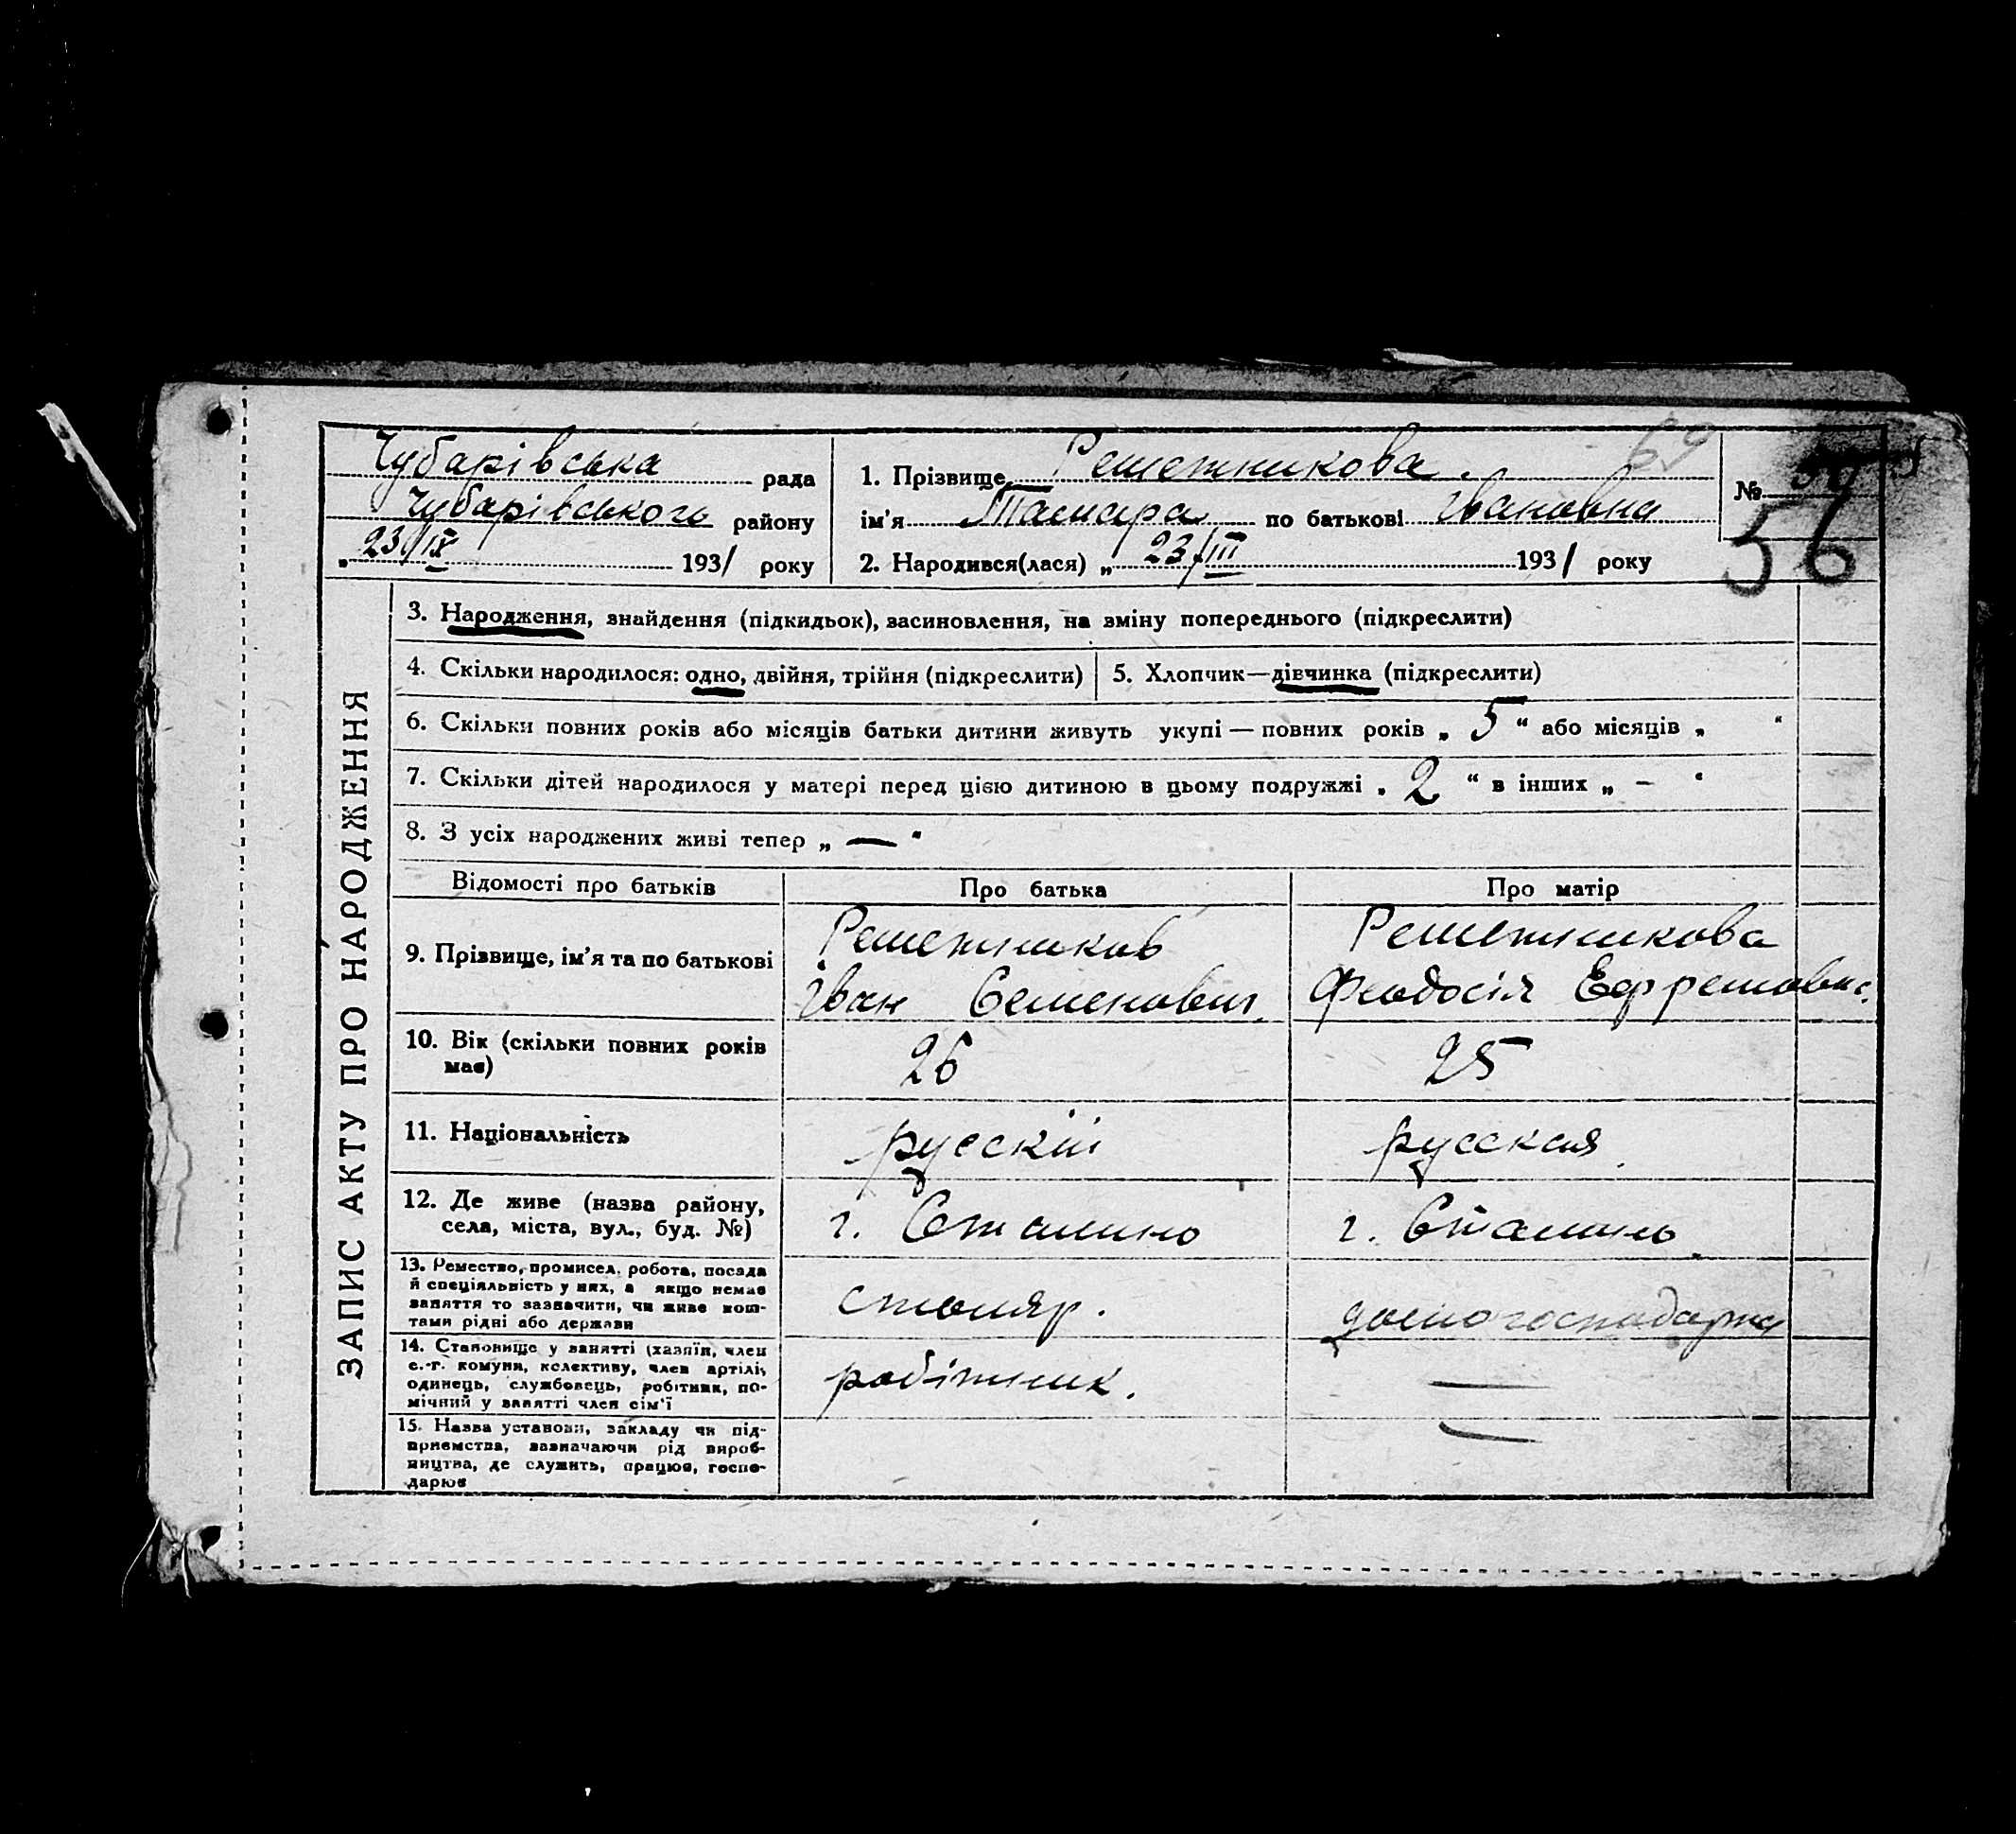 Чубарівська рада
Чубарівського району
„23/IX 1931 року
1. Прізвище Решетникова.
ім'я Тамара по батькові Івановна
2. Народився(лася) „23/III 1931 року
69
№
56
ЗАПИС АКТУ ПРО НАРОДЖЕННЯ
3. Народження, знайдення (підкидьок), засиновлення, на зміну попереднього (підкреслити)
4. Скільки народилося: одно, двійня, трійня (підкреслити)
5. Хлопчик—дівчинка (підкреслити)
6. Скільки повних років або місяців батьки дитини живуть укупі — повних років „ 5 “ або місяців „ “
7. Скільки дітей народилося у матері перед цією дитиною в цьому подружжі „ 2 “ в інших „ – “
8. З усіх народжених живі тепер „ — “
Відомості про батьків
Про батька
Про матір
9. Прізвище, ім'я та по батькові
Решетников
Іван Семенович.
Решетникова
Феодосія Ефремовна.
10. Вік (скільки повних років
має)
26
25
11. Національність
русскій
русская.
12. Де живе (назва району,
села, міста, вул., буд. №)
г. Сталино
г. Сталино.
13. Ремество, промисел, робота, посада
й спеціяльність у них, а якщо немає
заняття то зазначити, чи живе кош-
тами рідні або держави
столяр.
домогосподарка
14. Становище у занятті (хазяїн, член
с.-г. комуни, колективу, член артілі,
одинець, службовець, робітник, по-
мічний у занятті член сім'ї
робітник.
—
15. Назва установи, закладу чи під-
приємства, зазначаючи рід вироб-
ництва, де служить, працює, госпо-
дарює
—